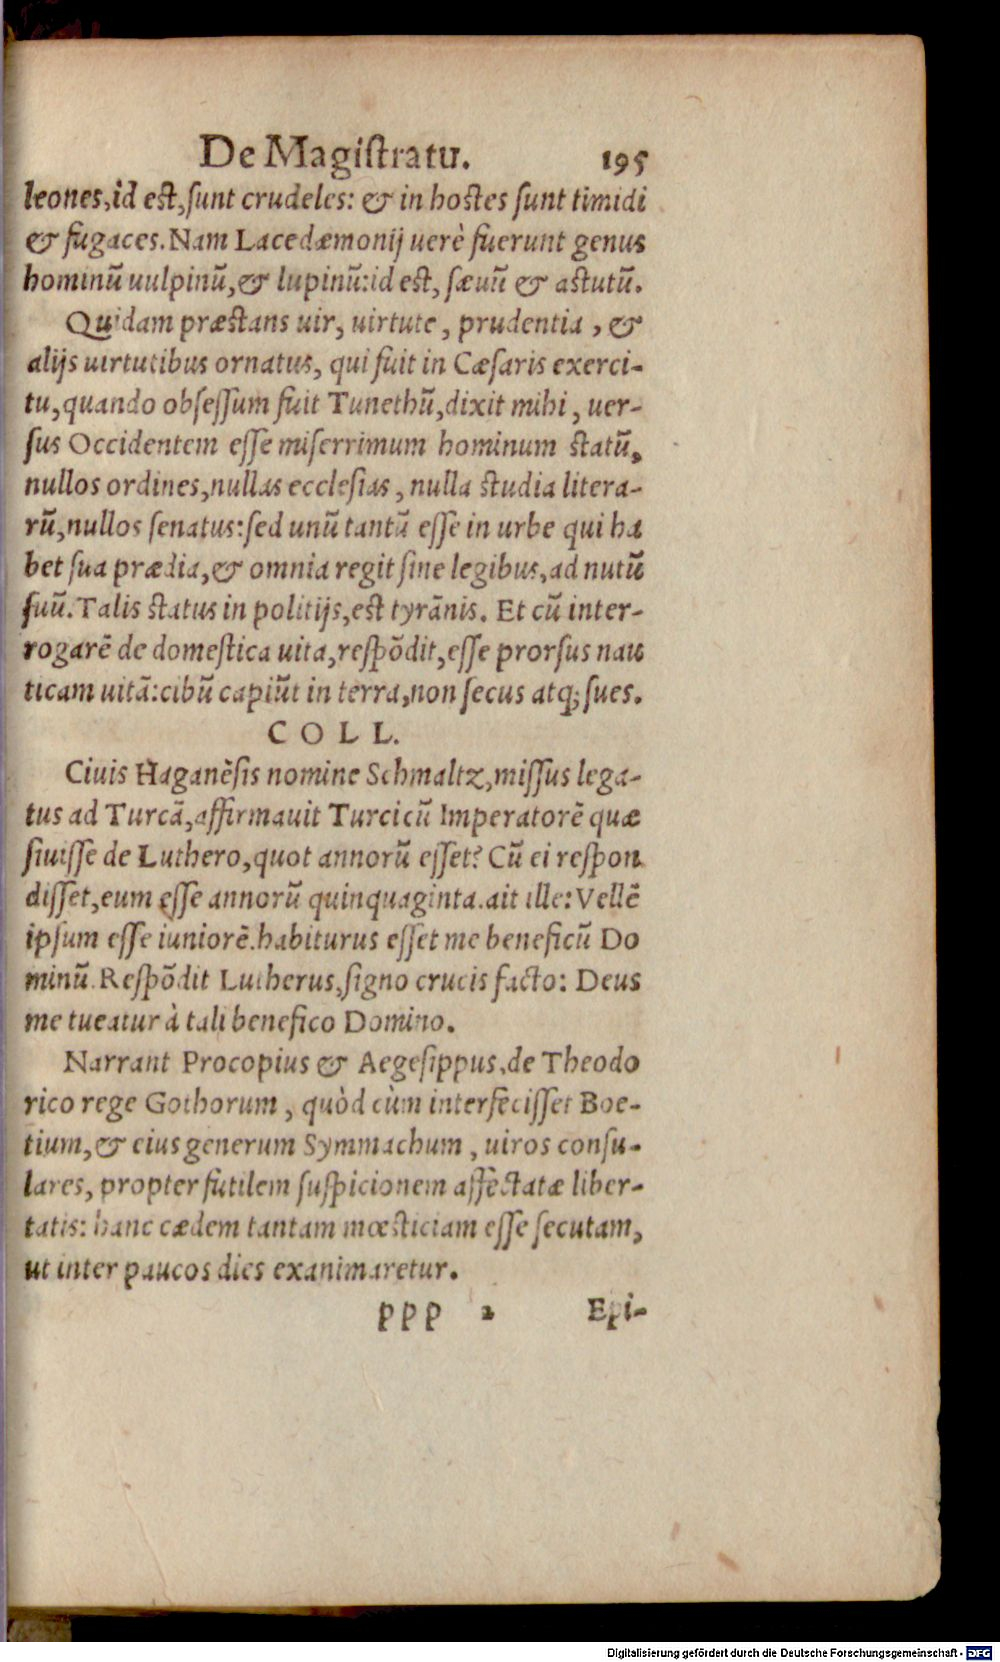 De Magiſtratu. 195
leones, id eſt, ſunt crudeles: & in hoſtes ſunt timidi
& fugaces. Nam Lacedæmonij uerè fuerunt genus
hominū uulpinū, & lupinū: id eſt, ſæuū & aſtutū.
Quidam præſtans uir, uirtute, prudentia, &
alijs uirtutibus ornatus, qui fuit in Cæſaris exerci-
tu, quando obſeſſum fuit Tunethū, dixit mihi, uer-
ſus Occidentem eſſe miſerrimum hominum ſtatū,
nullos ordines, nullas eccleſias, nulla ſtudia litera-
rū, nullos ſenatus: ſed unū tantū eſſe in urbe qui ha
bet ſua prædia, & omnia regit ſine legibus, ad nutū
ſuū. Talis ſtatus in politijs, eſt tyrānis. Et cū inter-
rogarē de domeſtica uita, reſpōdit, eſſe prorſus nau
ticam uitā: cibū capiūt in terra, non ſecus atq; ſues.
COLL.
Ciuis Haganēſis nomine Schmaltz, miſſus lega-
tus ad Turcā, affirmauit Turcicū Imperatorē quæ
ſiuiſſe de Luthero, quot annorū eſſet? Cū ei reſpon
diſſet, eum eſſe annorū quinquaginta. ait ille: Vellē
ipſum eſſe iuniorē. habiturus eſſet me beneficū Do
minū. Reſpōdit Lutherus, ſigno crucis facto: Deus
me tueatur à tali benefico Domino.
Narrant Procopius & Aegeſippus, de Theodo
rico rege Gothorum, quòd cùm interfeciſſet Boe-
tium, & eius generum Symmachum, uiros conſu-
lares, propter futilem ſuſpicionem affectatæ liber-
tatis: hanc cædem tantam mœſticiam eſſe ſecutam,
ut inter paucos dies exanimaretur.
ppp 2 Epi-
Digitalisierung gefördert durch die Deutsche Forschungsgemeinschaft - DFG